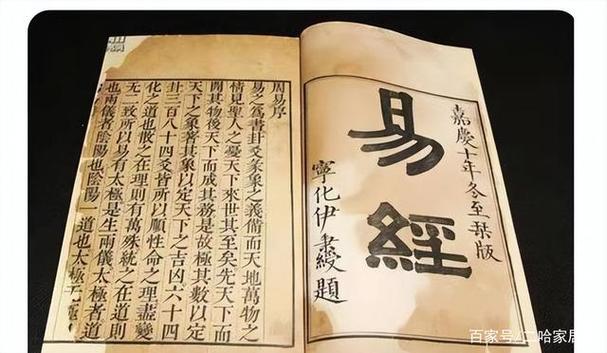 嘉慶十年冬至栞版
易經
寧化伊秉綬題
周易序
易之爲書卦爻彖象之義備而天地萬物之
情見聖人之憂天下來世其至矣先天下而
開其物後天下而成其務是故極其數以定
天下之象著其象以定天下之吉凶六十四
卦三百八十四爻皆所以順性命之理盡變
化之道也散之在理則有萬殊統之在道則
无二致所以易有太極是生兩儀太極者道
也兩儀者陰陽也陰陽一道也太極无極
百家号/二哈家居